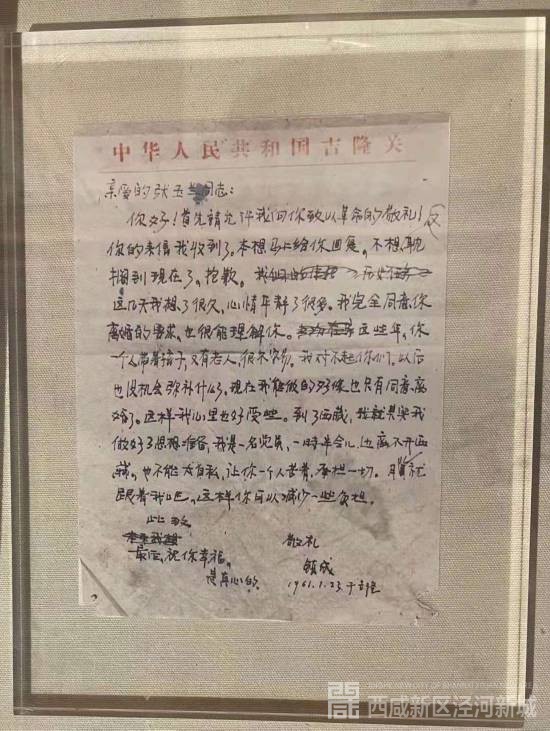 中华人民共和国吉隆关
亲爱的张玉兰同志：
你好！首先请允许我向你致以革命的敬礼！
你的来信我收到了。本想马上给你回复。不想耽
搁到现在了。抱歉。
这几天我想了很久，心情平静了很多。我完全同意你
离婚的要求。也很能理解你。这些年，你
一个人带着孩子，又有老人，很不容易。我对不起你们，以后
也没机会弥补什么了。现在我能做的好像也只有同意离
婚了。这样我心里也好受些。到了西藏，我就
做好了思想准备，我是一名党员，一时半会儿，也离不开西
藏。也不能太自私，让你一个人苦着，承担一切。就
跟着我吧。这样你可以减少一些负担。
此致
敬礼
最后，祝你幸福。
是真心的
1961.1.23于
西咸新区泾河新城